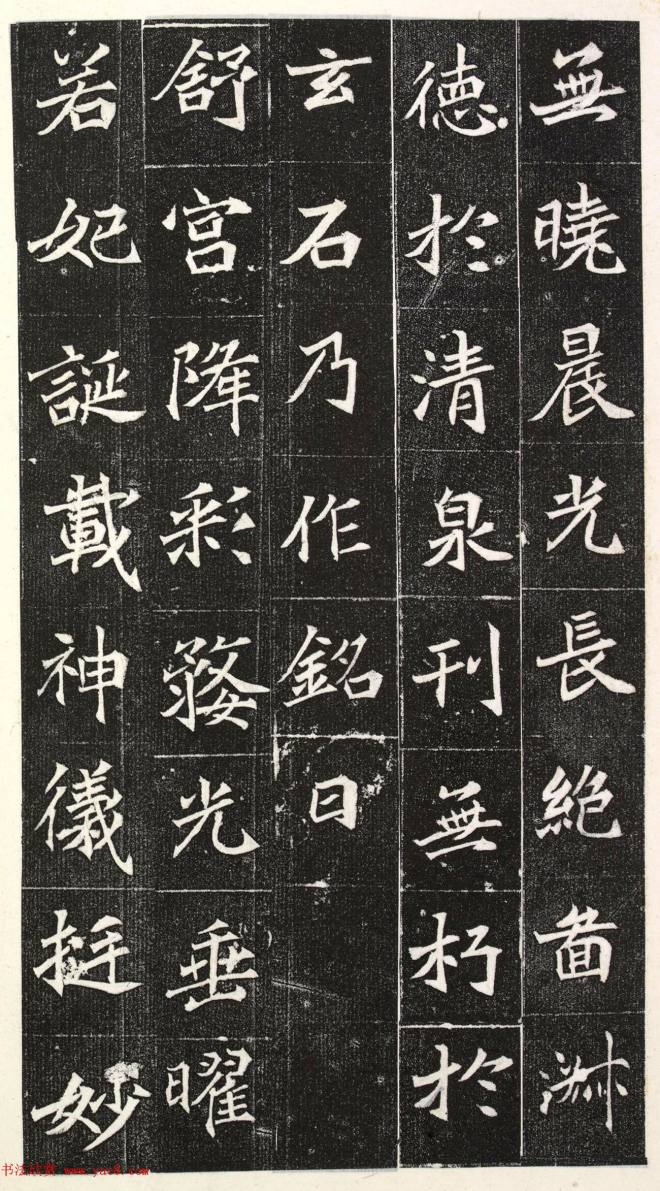 無曉晨光長絶啚淑
徳於清泉刊無朽於
玄石乃作銘曰
舒宮降彩婺光垂曜
若妃誕載神儀挺妙
书法欣赏 www.yac8.com